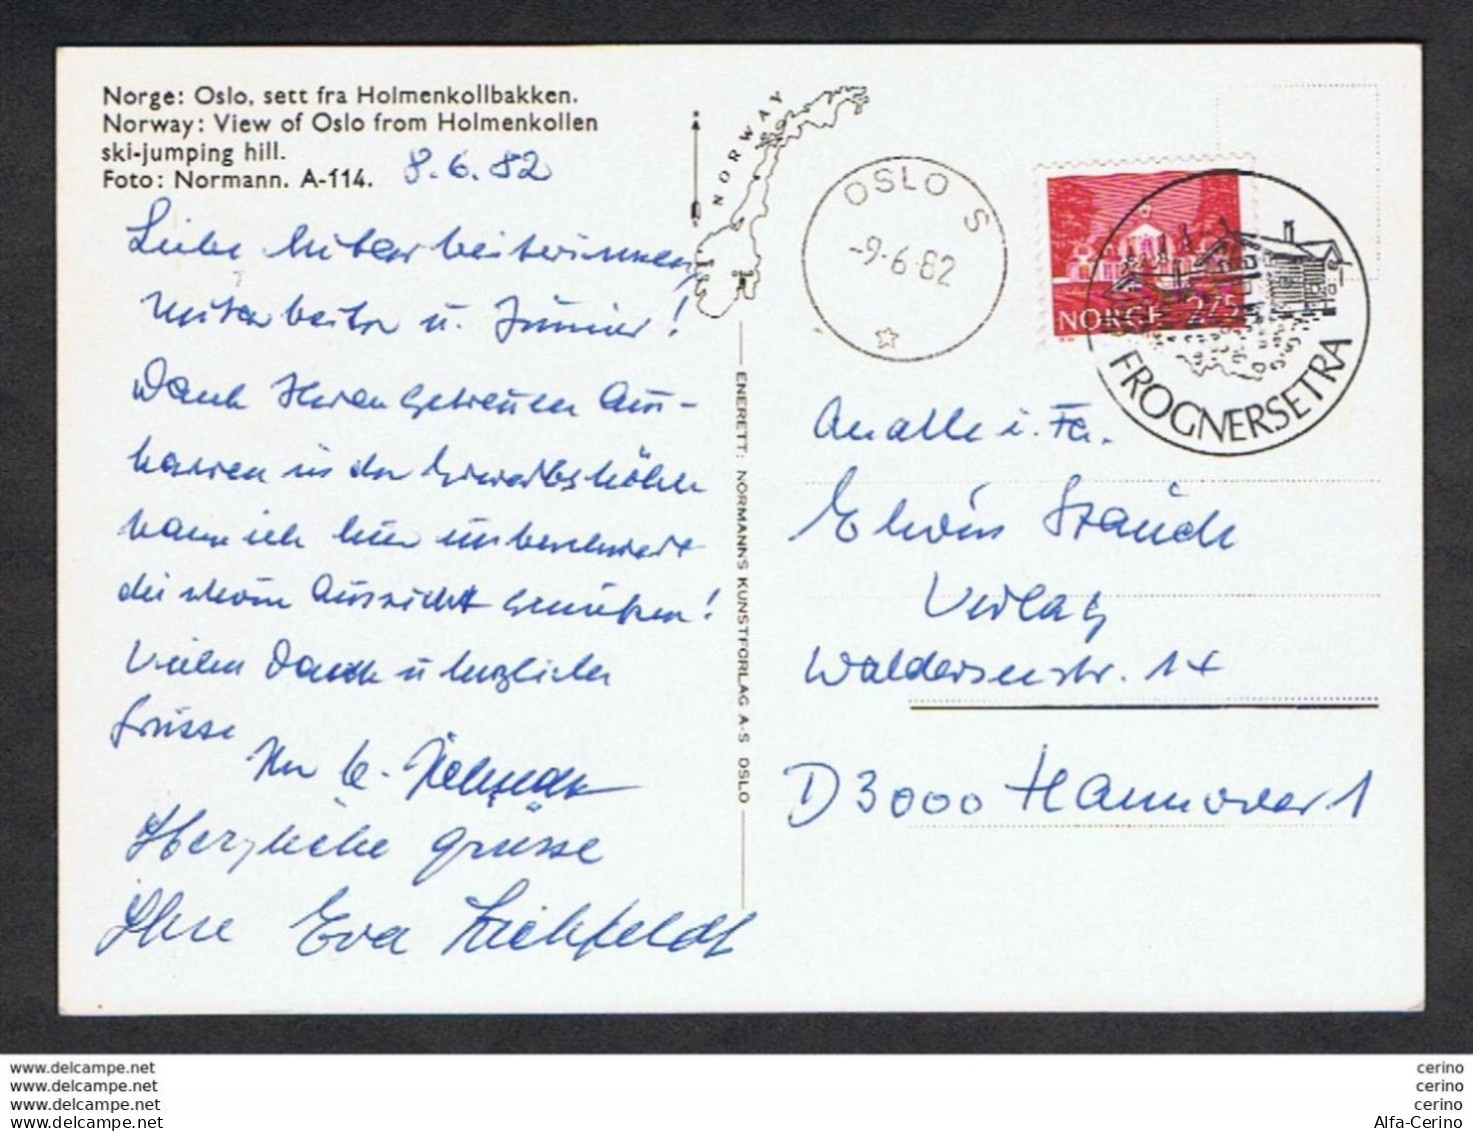 Norge: Oslo, sett fra Holmenkollbakken.
Norway: View of Oslo from Holmenkollen
ski-jumping hill.
Foto: Normann. A-114.
8.6.82
Liebe Mitarbeiterinnen,
Mitarbeiter u. Jünior!
Dank Ihren getreuen Aus-
harren in der Erwerbshöhle
kann ich hier unbeschwert
die schöne Aussicht genießen!
Vielen Dank u herzliche
Grüsse
Ihr
Herzliche Grüsse
Ihre Eva Lichfeldt
NORWAY
ENERETT: NORMANNS KUNSTFORLAG A-S OSLO
OSLO S
-9-6-82
NORGE 275
FROGNERSETRA
An alle i. Fa.
Elwin Staude
Verlag
Walderseestr. 14
D 3000 Hannover 1
www.delcampe.net
www.delcampe.net
www.delcampe.net
www.delcampe.net
cerino
cerino
cerino
Alfa-Cerino